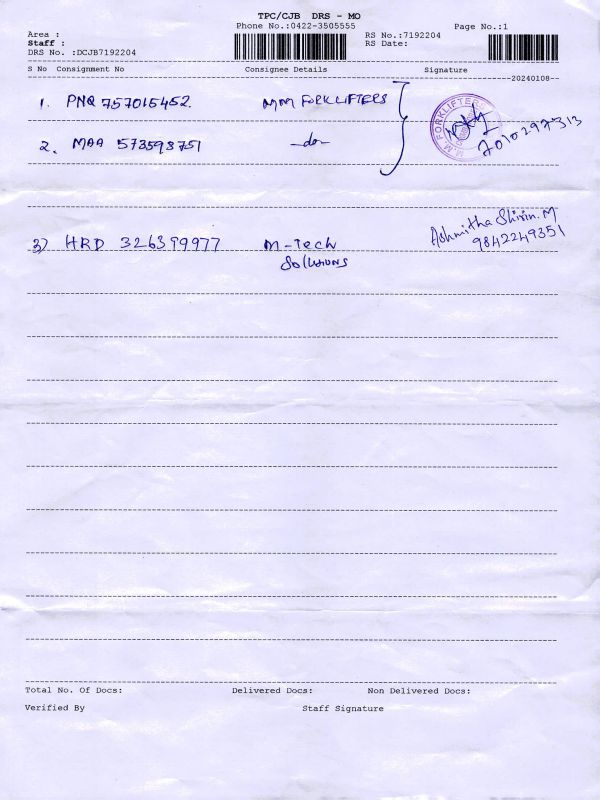 TPC/CJB DRS - MO
Phone No.:0422-3505555 Page No.:1
Area : RS No.:7192204
Staff : RS Date:
DRS No. :DCJB7192204
S No Consignment No Consignee Details Signature
20240108
1. PNQ 757015452 MM FORKLIFTERS
2. MAA 573593751 -do-
M.M FORKLIFTERS
7010297313
3) HRD 326399977 M-Tech Solutions
Ashmitha Shirin.M
9842249351
Total No. Of Docs: Delivered Docs: Non Delivered Docs:
Verified By Staff Signature